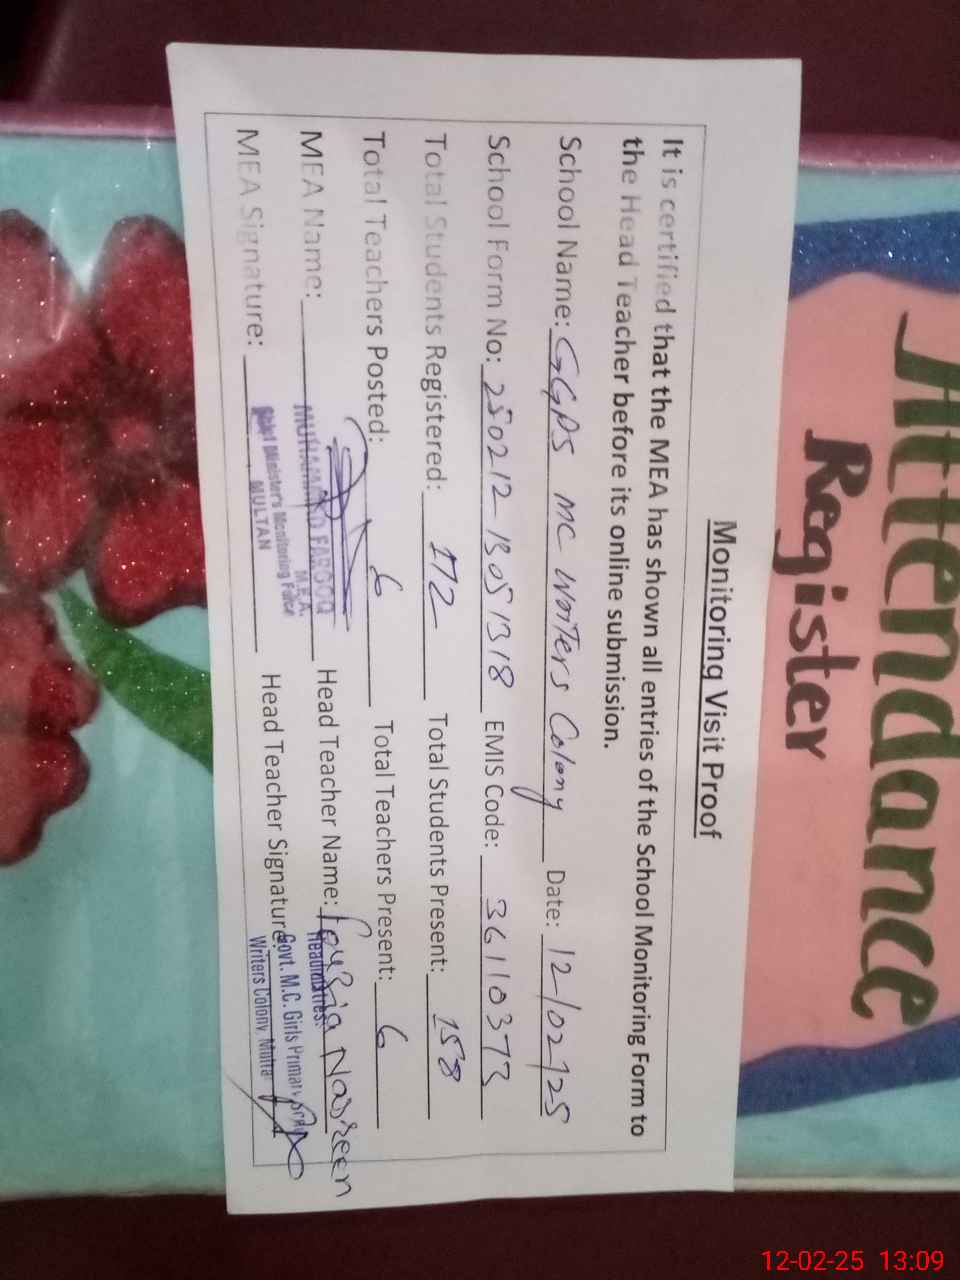 Attendance
Register
Monitoring Visit Proof
It is certified that the MEA has shown all entries of the School Monitoring Form to
the Head Teacher before its online submission.
School Name: GGPS MC Writers Colony Date: 12/02/25
School Form No: 250212-13051318 EMIS Code: 36110373
Total Students Registered: 172 Total Students Present: 158
Total Teachers Posted: 6 Total Teachers Present: 6
MEA Name: MUHAMMAD FAROOQ Head Teacher Name: Fouzia Nasreen
M.E.A.
Chief Minister's Monitoring Force
MULTAN
MEA Signature: Head Teacher Signature:
Headmistres
Govt. M.C. Girls Primary
Writers Colony, Multa
12-02-25 13:09